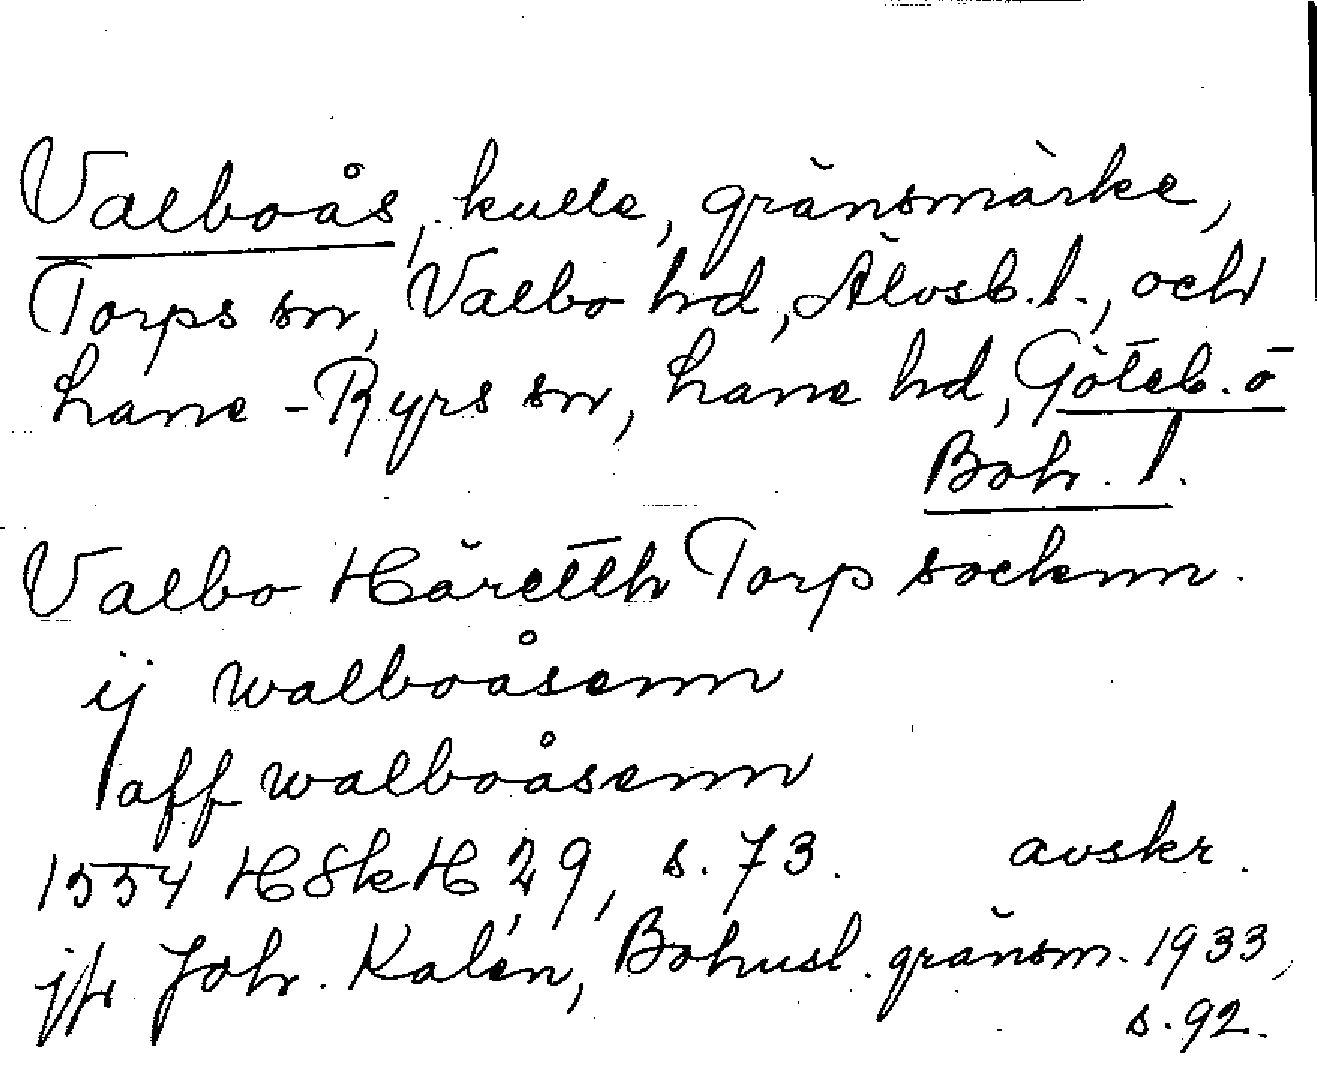 Valboås, kulle, gränsmärke,
Torps sn, Valbo hd, Älvsb. l., och
Lane-Ryrs sn, Lane hd, Göteb. o
Boh. l.
Valbo Häretth Torp sockenn.
ij walboåsenn
aff walboåsenn
1554 HSkH, 29, s. 73. avskr.
jfr Joh. Kalén, Bohusl. gränsm. 1933,
s. 92.